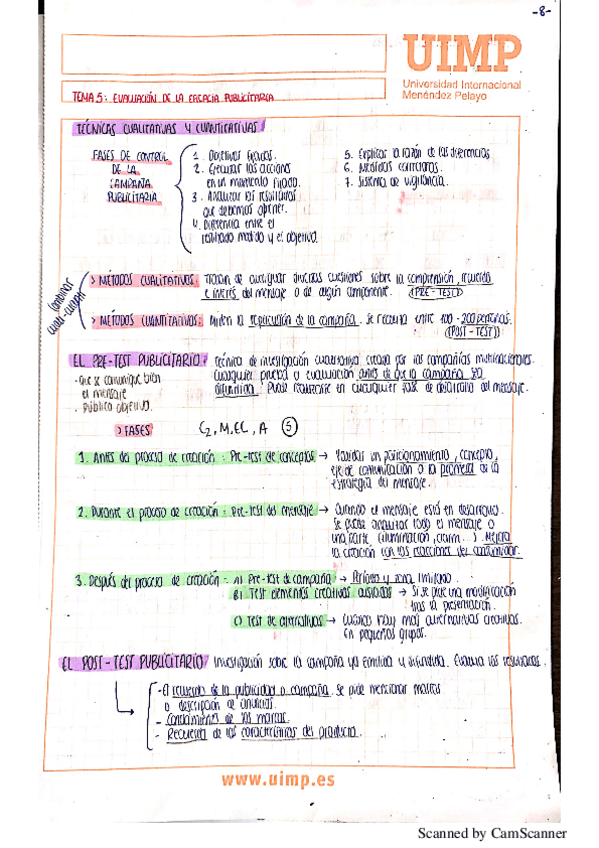 -8-
UIMP
Universidad Internacional
Menéndez Pelayo
TEMA 5: EVALUACIÓN DE LA EFICACIA PUBLICITARIA
TÉCNICAS CUALITATIVAS Y CUANTITATIVAS
FASES DE CONTROL
DE LA
CAMPAÑA
PUBLICITARIA
1. Objetivos fijados.
2. Ejecutar las acciones
en un momento fijado.
3. Analizar los resultados
que debemos obtener.
4. Diferencia entre el
resultado medido y el objetivo.
5. Explicar la razón de las diferencias
6. Medidas correctoras.
7. Sistema de vigilancia.
Combinar
> MÉTODOS CUALITATIVOS: Tratan de averiguar diversas cuestiones sobre la comprensión, recuerdo
e interés del mensaje o de algún componente. (PRE-TEST)
> MÉTODOS CUANTITATIVOS: Miden la repercusión de la campaña. Se necesita entre 100-200 personas.
(POST-TEST)
EL PRE-TEST PUBLICITARIO: Técnica de investigación cualitativa creada por las compañías multinacionales.
Cualquier prueba y evaluación antes de que la campaña sea
difundida. Puede realizarse en cualquier fase de desarrollo del mensaje.
- Que se comunique bien
el mensaje
- Público objetivo.
> FASES C2, M, EC, A (5)
1. Antes del proceso de creación: Pre-test de conceptos → Validar un posicionamiento, concepto,
eje de comunicación o la promesa de la
estrategia del mensaje.
2. Durante el proceso de creación: Pre-test del mensaje → Cuando el mensaje está en desarrollo.
Se puede analizar todo el mensaje o
una parte (iluminación, claim...). Mejora
la creación con las reacciones del consumidor.
3. Después del proceso de creación: A) Pre-test de campaña → Período y zona limitado.
B) Test elementos creativos aislados → Si se hace una modificación
tras la presentación.
C) Test de alternativas → Cuando hay más alternativas creativas.
En pequeños grupos.
EL POST-TEST PUBLICITARIO: Investigación sobre la campaña ya emitida y difundida. Evalúa los resultados.
- El recuerdo de la publicidad o campaña. Se puede mencionar marcas
o descripción de anuncios.
- Conocimiento de las marcas.
- Recuerdo de las características del producto.
www.uimp.es
Scanned by CamScanner